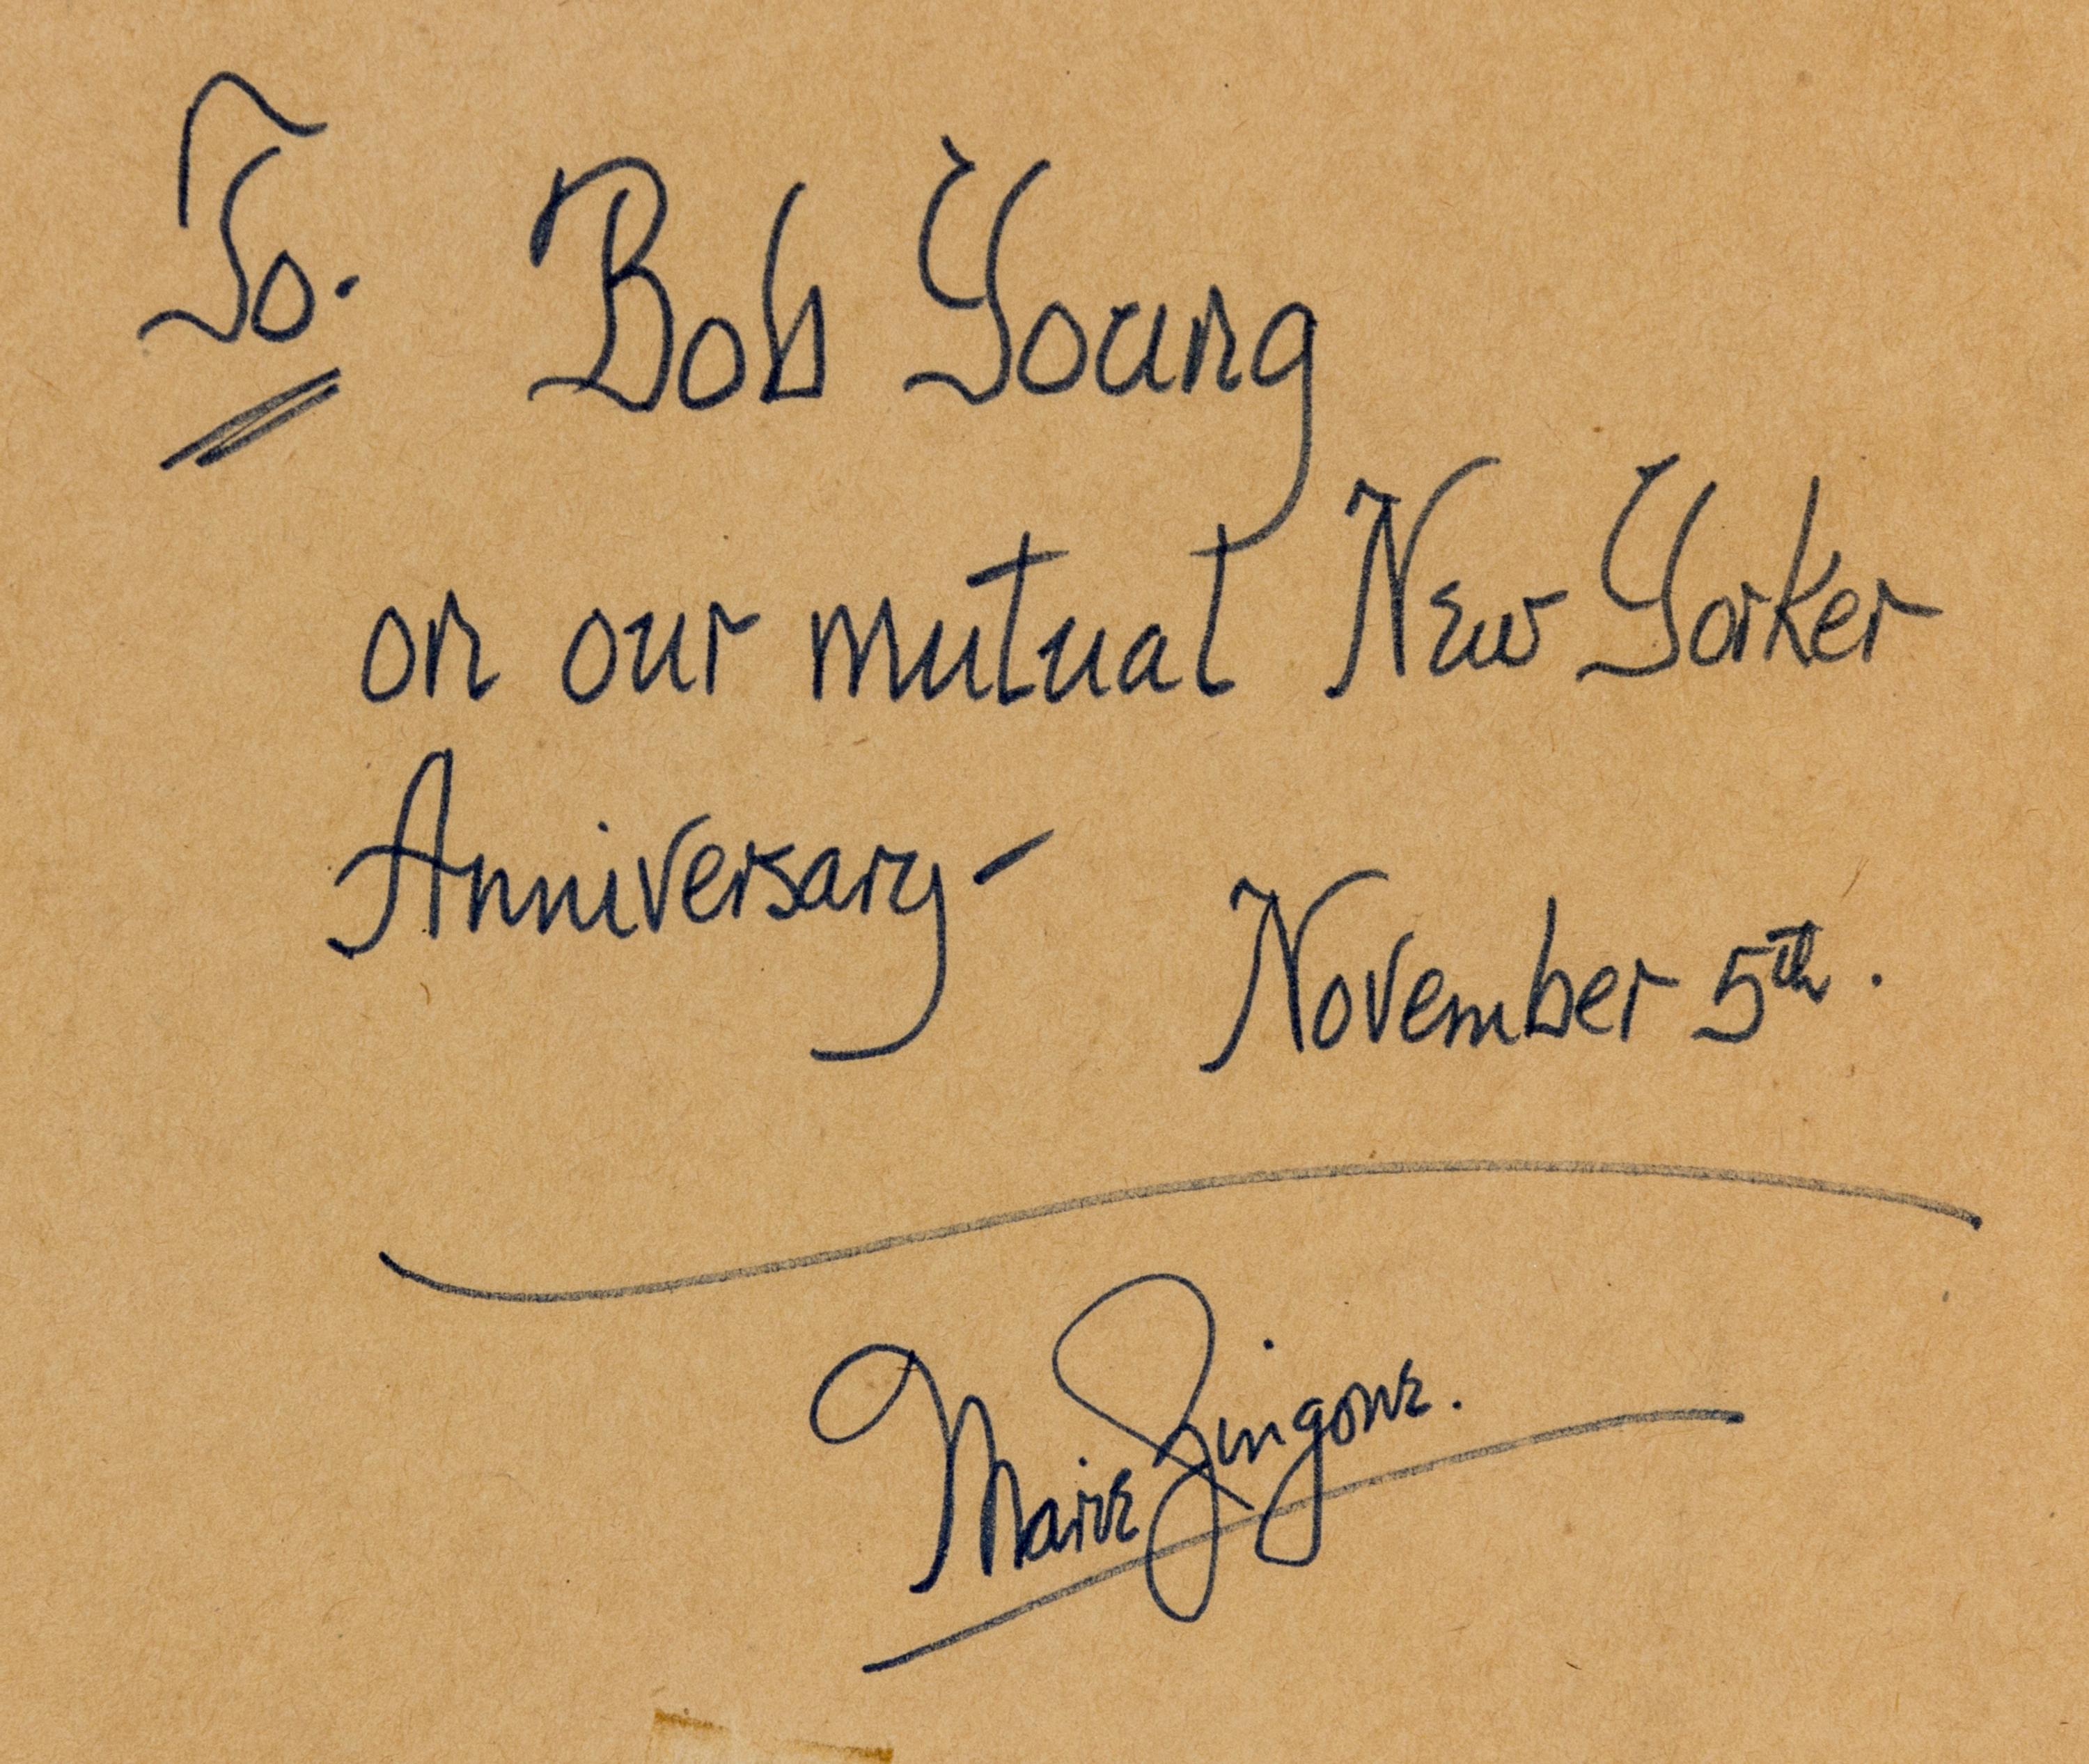 To.
Bob Young
on our mutual New Yorker
Anniversary -
November 5th.
Marie Zingone.